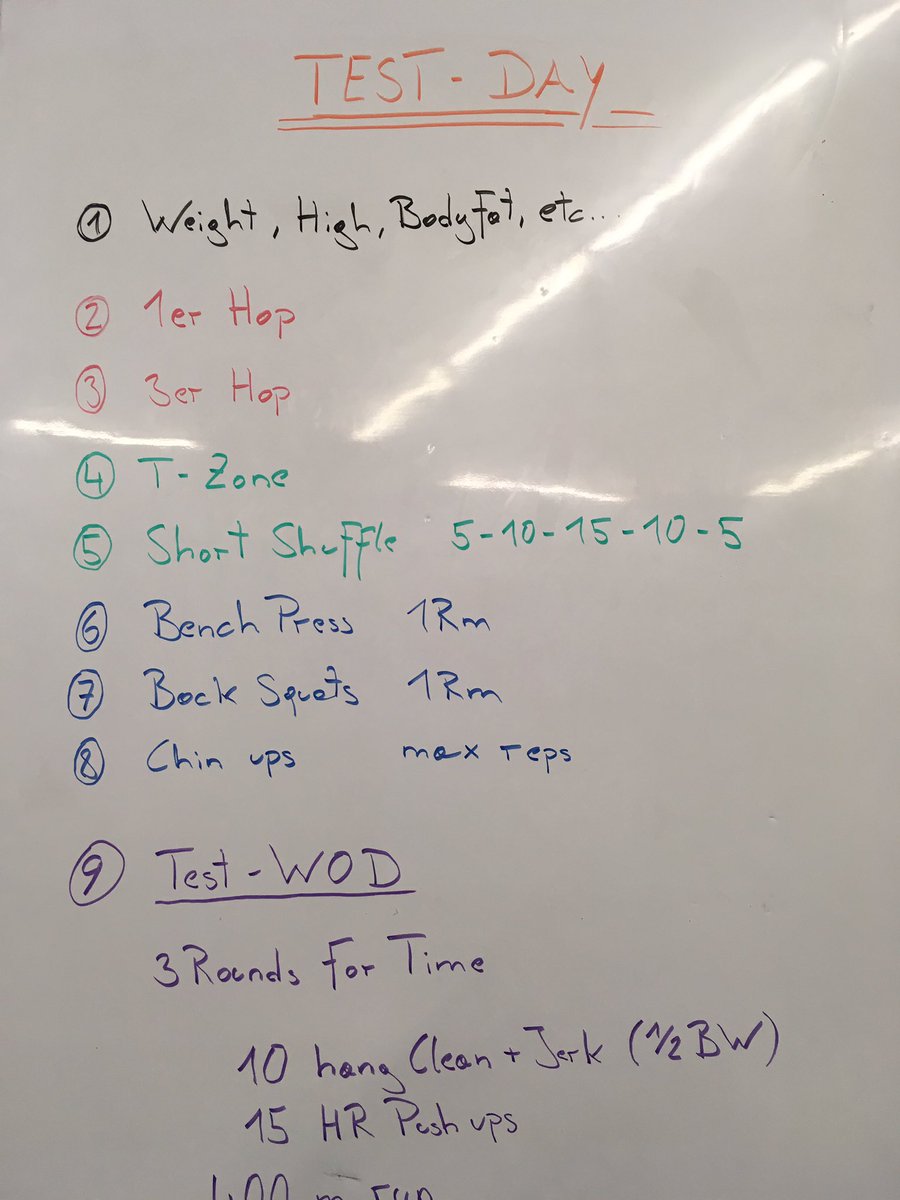 TEST - DAY
① Weight, High, Bodyfat, etc...
② 1er Hop
③ 3er Hop
④ T-Zone
⑤ Short Shuffle 5-10-15-10-5
⑥ Bench Press 1Rm
⑦ Back Squats 1Rm
⑧ Chin ups max reps
⑨ Test-WOD
3 Rounds for Time
10 hang Clean + Jerk (1/2 BW)
15 HR Push ups
400 m run